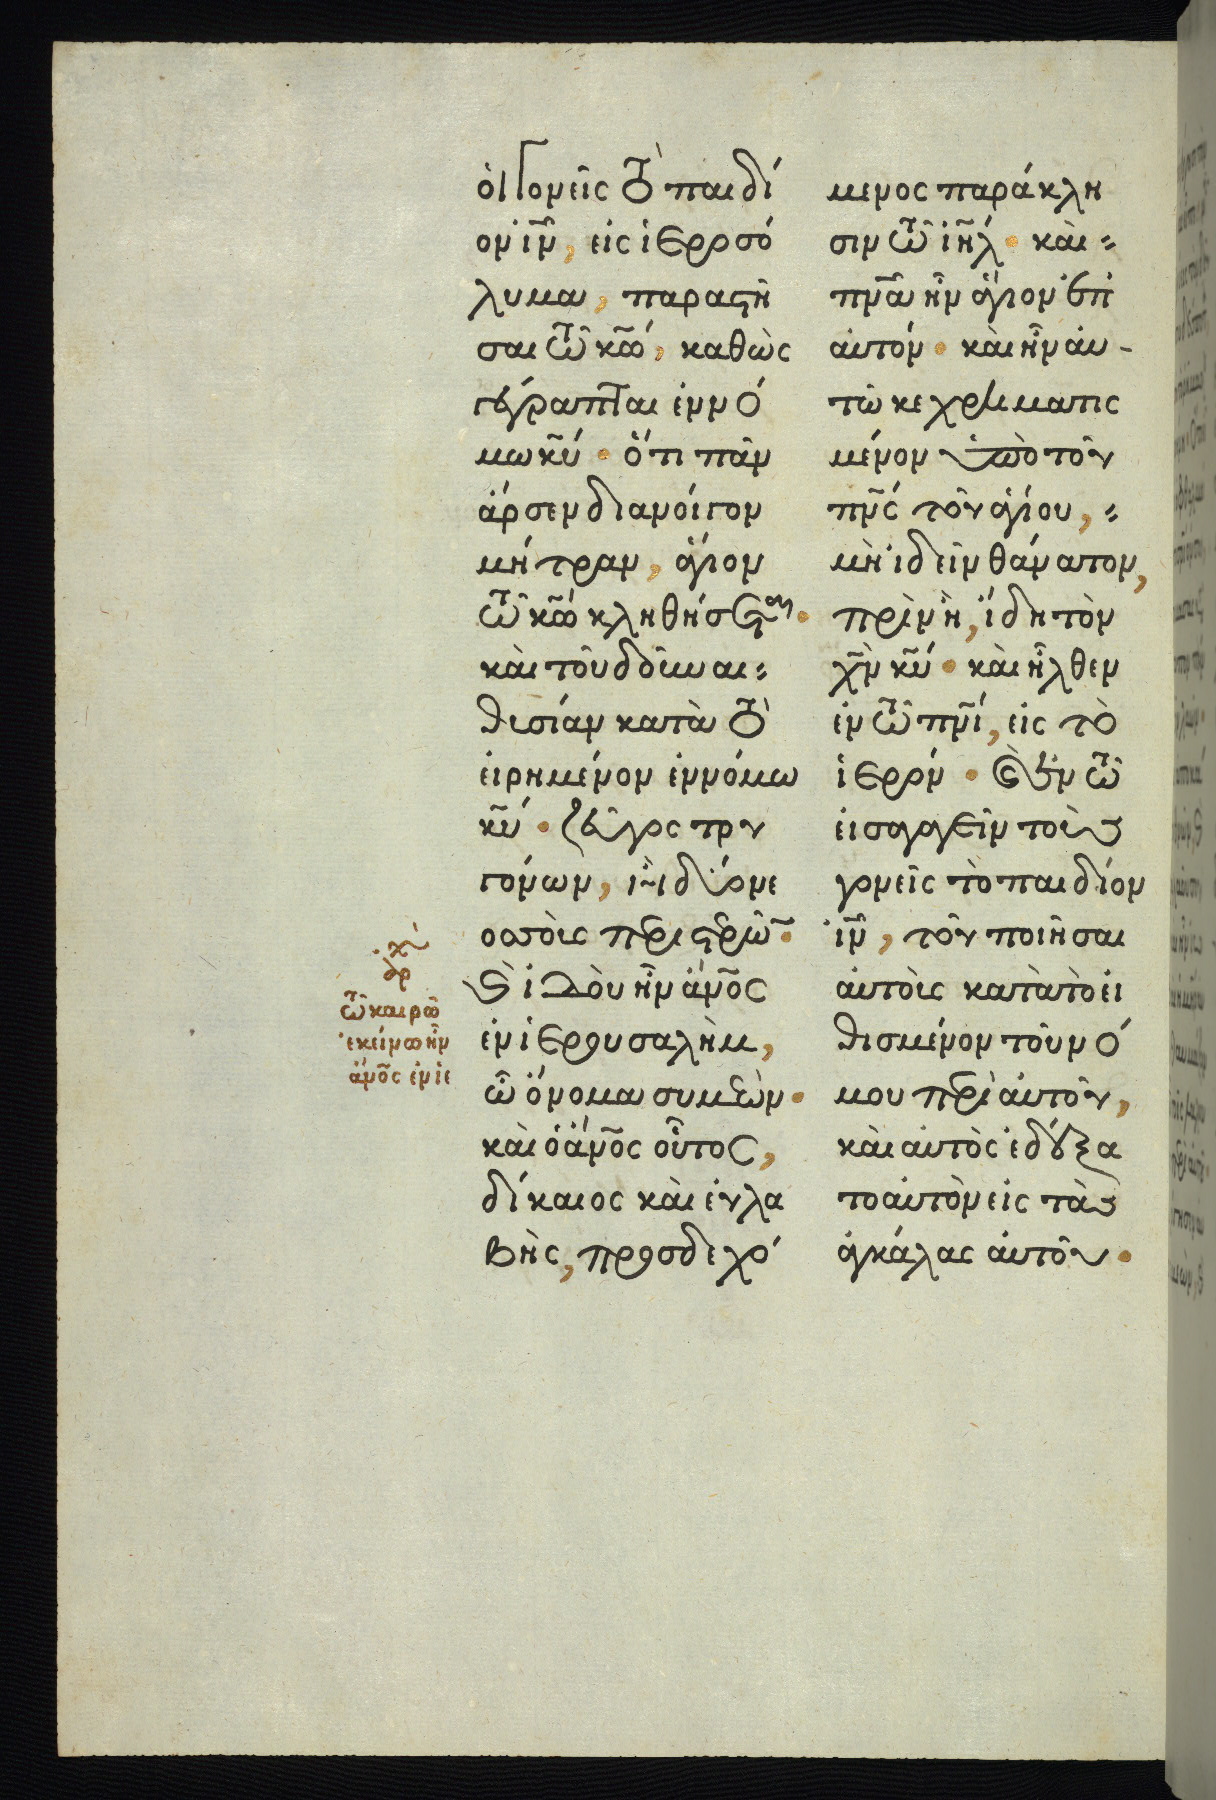 ὁι γονεῖς τὸ παιδί
ον ἰν̅, εἰς ἱεροσό
λυμα, παραστῆ
σαι τῶ κω̅, καθὼς
γέγραπται ἐν νό
μω κυ̅· ὅτι πᾶν
ἄρσεν διανοίγον
μήτραν, ἅγιον
τῶ κω̅ κληθήσεται·
καὶ τοῦ δοῦναι
θυσίαν κατὰ τὸ
εἰρημένον ἐν νόμω
κυ̅· ζεῦγος τρυ
γόνων, ἢ δύο νε
οσσοὺς περιστερῶν·
καὶ ἰδοὺ ἦν ἄνο̅ς
ἐν ἱερουσαλὴμ,
ὧ ὄνομα συμεὼν·
καὶ ὁ ἄνο̅ς οὗτος,
δίκαιος καὶ εὐλα
βὴς, προσδεχό
ἀρχὴ
τῶ καιρῶ
ἐκείνω ἦν
ἄνο̅ς ἐν ἱε
μενος παράκλη
σιν τῶ ἰη̅λ· καὶ
πν̅α ἦν ἅγιον ἐπ'
αὐτόν· καὶ ἦν αὐ
τῶ κεχρηματισ
μένον ὑπὸ τοῦ
πν̅ς τοῦ ἁγίου,
μὴ ἰδεῖν θάνατον,
πρὶν ἢ, ἴδη τὸν
χν̅ κυ̅· καὶ ἦλθεν
ἐν τῶ πν̅ι, εἰς τὸ
ἱερόν· καὶ ἐν τῶ
εἰσαγαγεῖν τοὺς
γονεῖς τὸ παιδίον
ἰν̅, τοῦ ποιῆσαι
αὐτοὺς κατὰ τὸ εἰ
θισμένον τοῦ νό
μου περὶ αὐτοῦ,
καὶ αὐτὸς ἐδέξα
το αὐτὸν εἰς τὰς
ἀγκάλας αὐτοῦ·